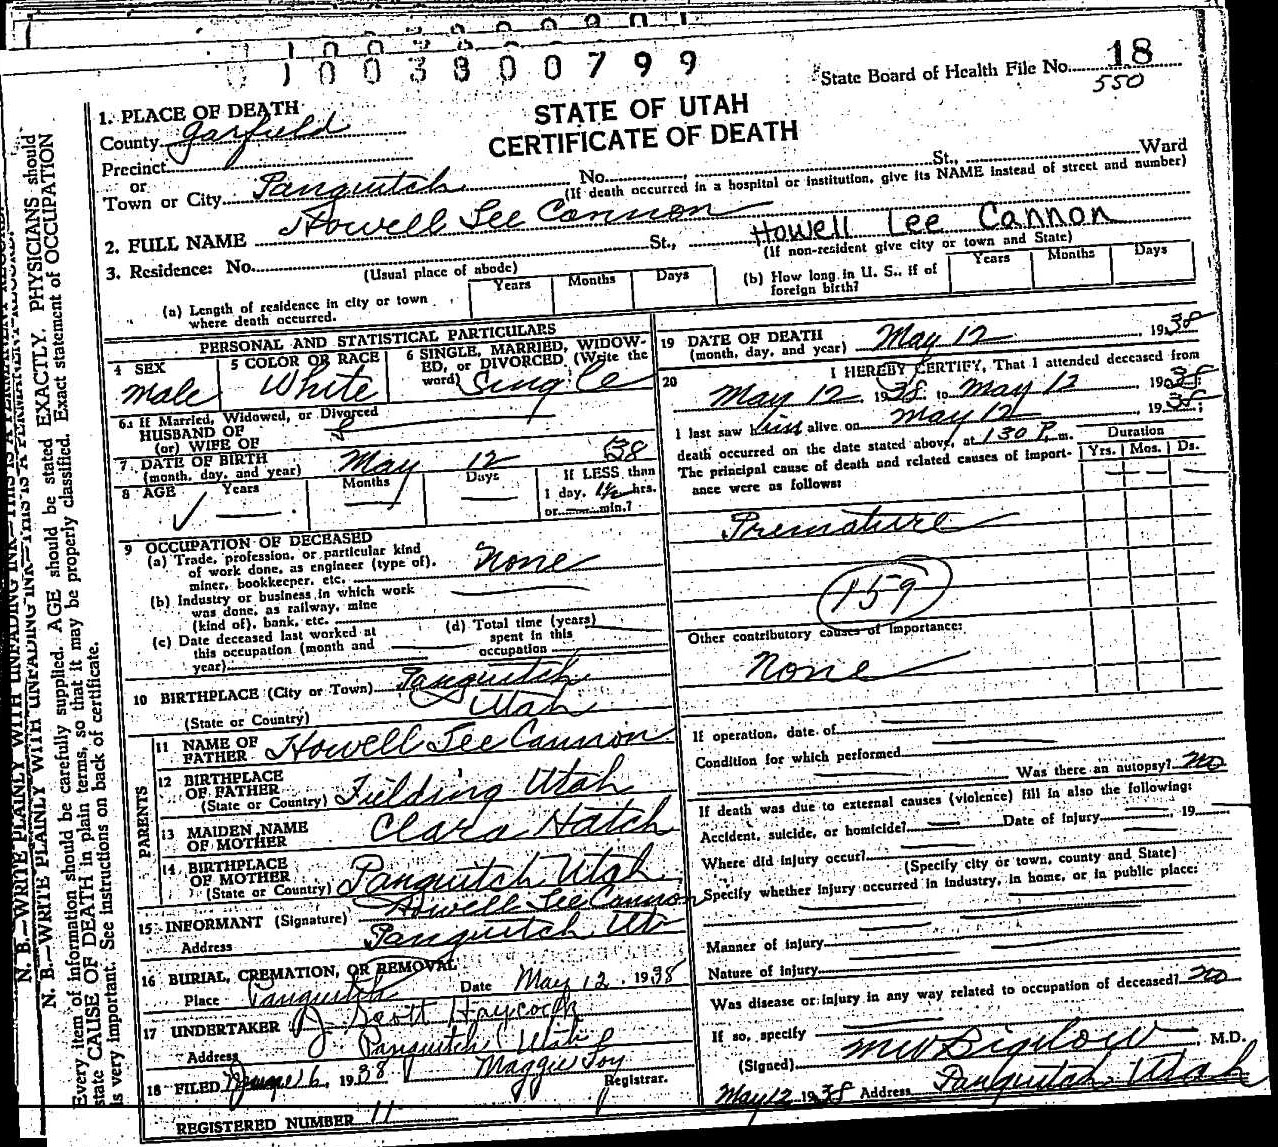 1003800799
State Board of Health File No. 18
550
STATE OF UTAH
CERTIFICATE OF DEATH
1. PLACE OF DEATH
County Garfield
Precinct
or
Town or City Panguitch No. St., Ward
(If death occurred in a hospital or institution, give its NAME instead of street and number)
2. FULL NAME Howell Lee Cannon Howell Lee Cannon
3. Residence: No. St.,
(Usual place of abode) (If non-resident give city or town and State)
(a) Length of residence in city or town where death occurred. Years Months Days
(b) How long in U. S., if of foreign birth? Years Months Days
PERSONAL AND STATISTICAL PARTICULARS
4 SEX Male
5 COLOR OR RACE White
6 SINGLE, MARRIED, WIDOWED, or DIVORCED (Write the word) Single
6a If Married, Widowed, or Divorced
HUSBAND OF
(or) WIFE OF
7 DATE OF BIRTH (month, day, and year) May 12 38
8 AGE Years Months Days
If LESS than 1 day, 1½ hrs. or min.?
9 OCCUPATION OF DECEASED
(a) Trade, profession, or particular kind of work done, as engineer (type of), miner, bookkeeper, etc. None
(b) Industry or business in which work was done, as railway, mine (kind of), bank, etc.
(c) Date deceased last worked at this occupation (month and year)
(d) Total time (years) spent in this occupation
10 BIRTHPLACE (City or Town) Panguitch
(State or Country) Utah
PARENTS
11 NAME OF FATHER Howell Lee Cannon
12 BIRTHPLACE OF FATHER (State or Country) Fielding Utah
13 MAIDEN NAME OF MOTHER Clara Hatch
14 BIRTHPLACE OF MOTHER (State or Country) Panguitch Utah
15 INFORMANT (Signature) Howell Lee Cannon
Address Panguitch Utah
16 BURIAL, CREMATION, OR REMOVAL
Place Panguitch Date May 12, 1938
17 UNDERTAKER J. Scott Haycock
Address Panguitch Utah
18 FILED June 6, 1938 Maggie Foy
Registrar.
REGISTERED NUMBER 11
19 DATE OF DEATH (month, day, and year) May 12, 1938
20 I HEREBY CERTIFY, That I attended deceased from
May 12 1938 to May 12, 1938;
I last saw him alive on May 12, 1938;
death occurred on the date stated above, at 1 30 P. m.
Duration
The principal cause of death and related causes of importance were as follows: Yrs. Mos. Ds.
Premature
159
Other contributory causes of importance:
None
If operation, date of
Condition for which performed
Was there an autopsy? no
If death was due to external causes (violence) fill in also the following:
Accident, suicide, or homicide? Date of injury , 19
Where did injury occur?
(Specify city or town, county and State)
Specify whether injury occurred in industry, in home, or in public place:
Manner of injury
Nature of injury
Was disease or injury in any way related to occupation of deceased? no
If so, specify
(Signed) M W Bigelow, M.D.
May 12 1938 Address Panguitch Utah
N. B.—WRITE PLAINLY WITH UNFADING INK—THIS IS A PERMANENT RECORD.
Every item of information should be carefully supplied. AGE should be stated EXACTLY. PHYSICIANS should
state CAUSE OF DEATH in plain terms, so that it may be properly classified. Exact statement of OCCUPATION
is very important. See instructions on back of certificate.